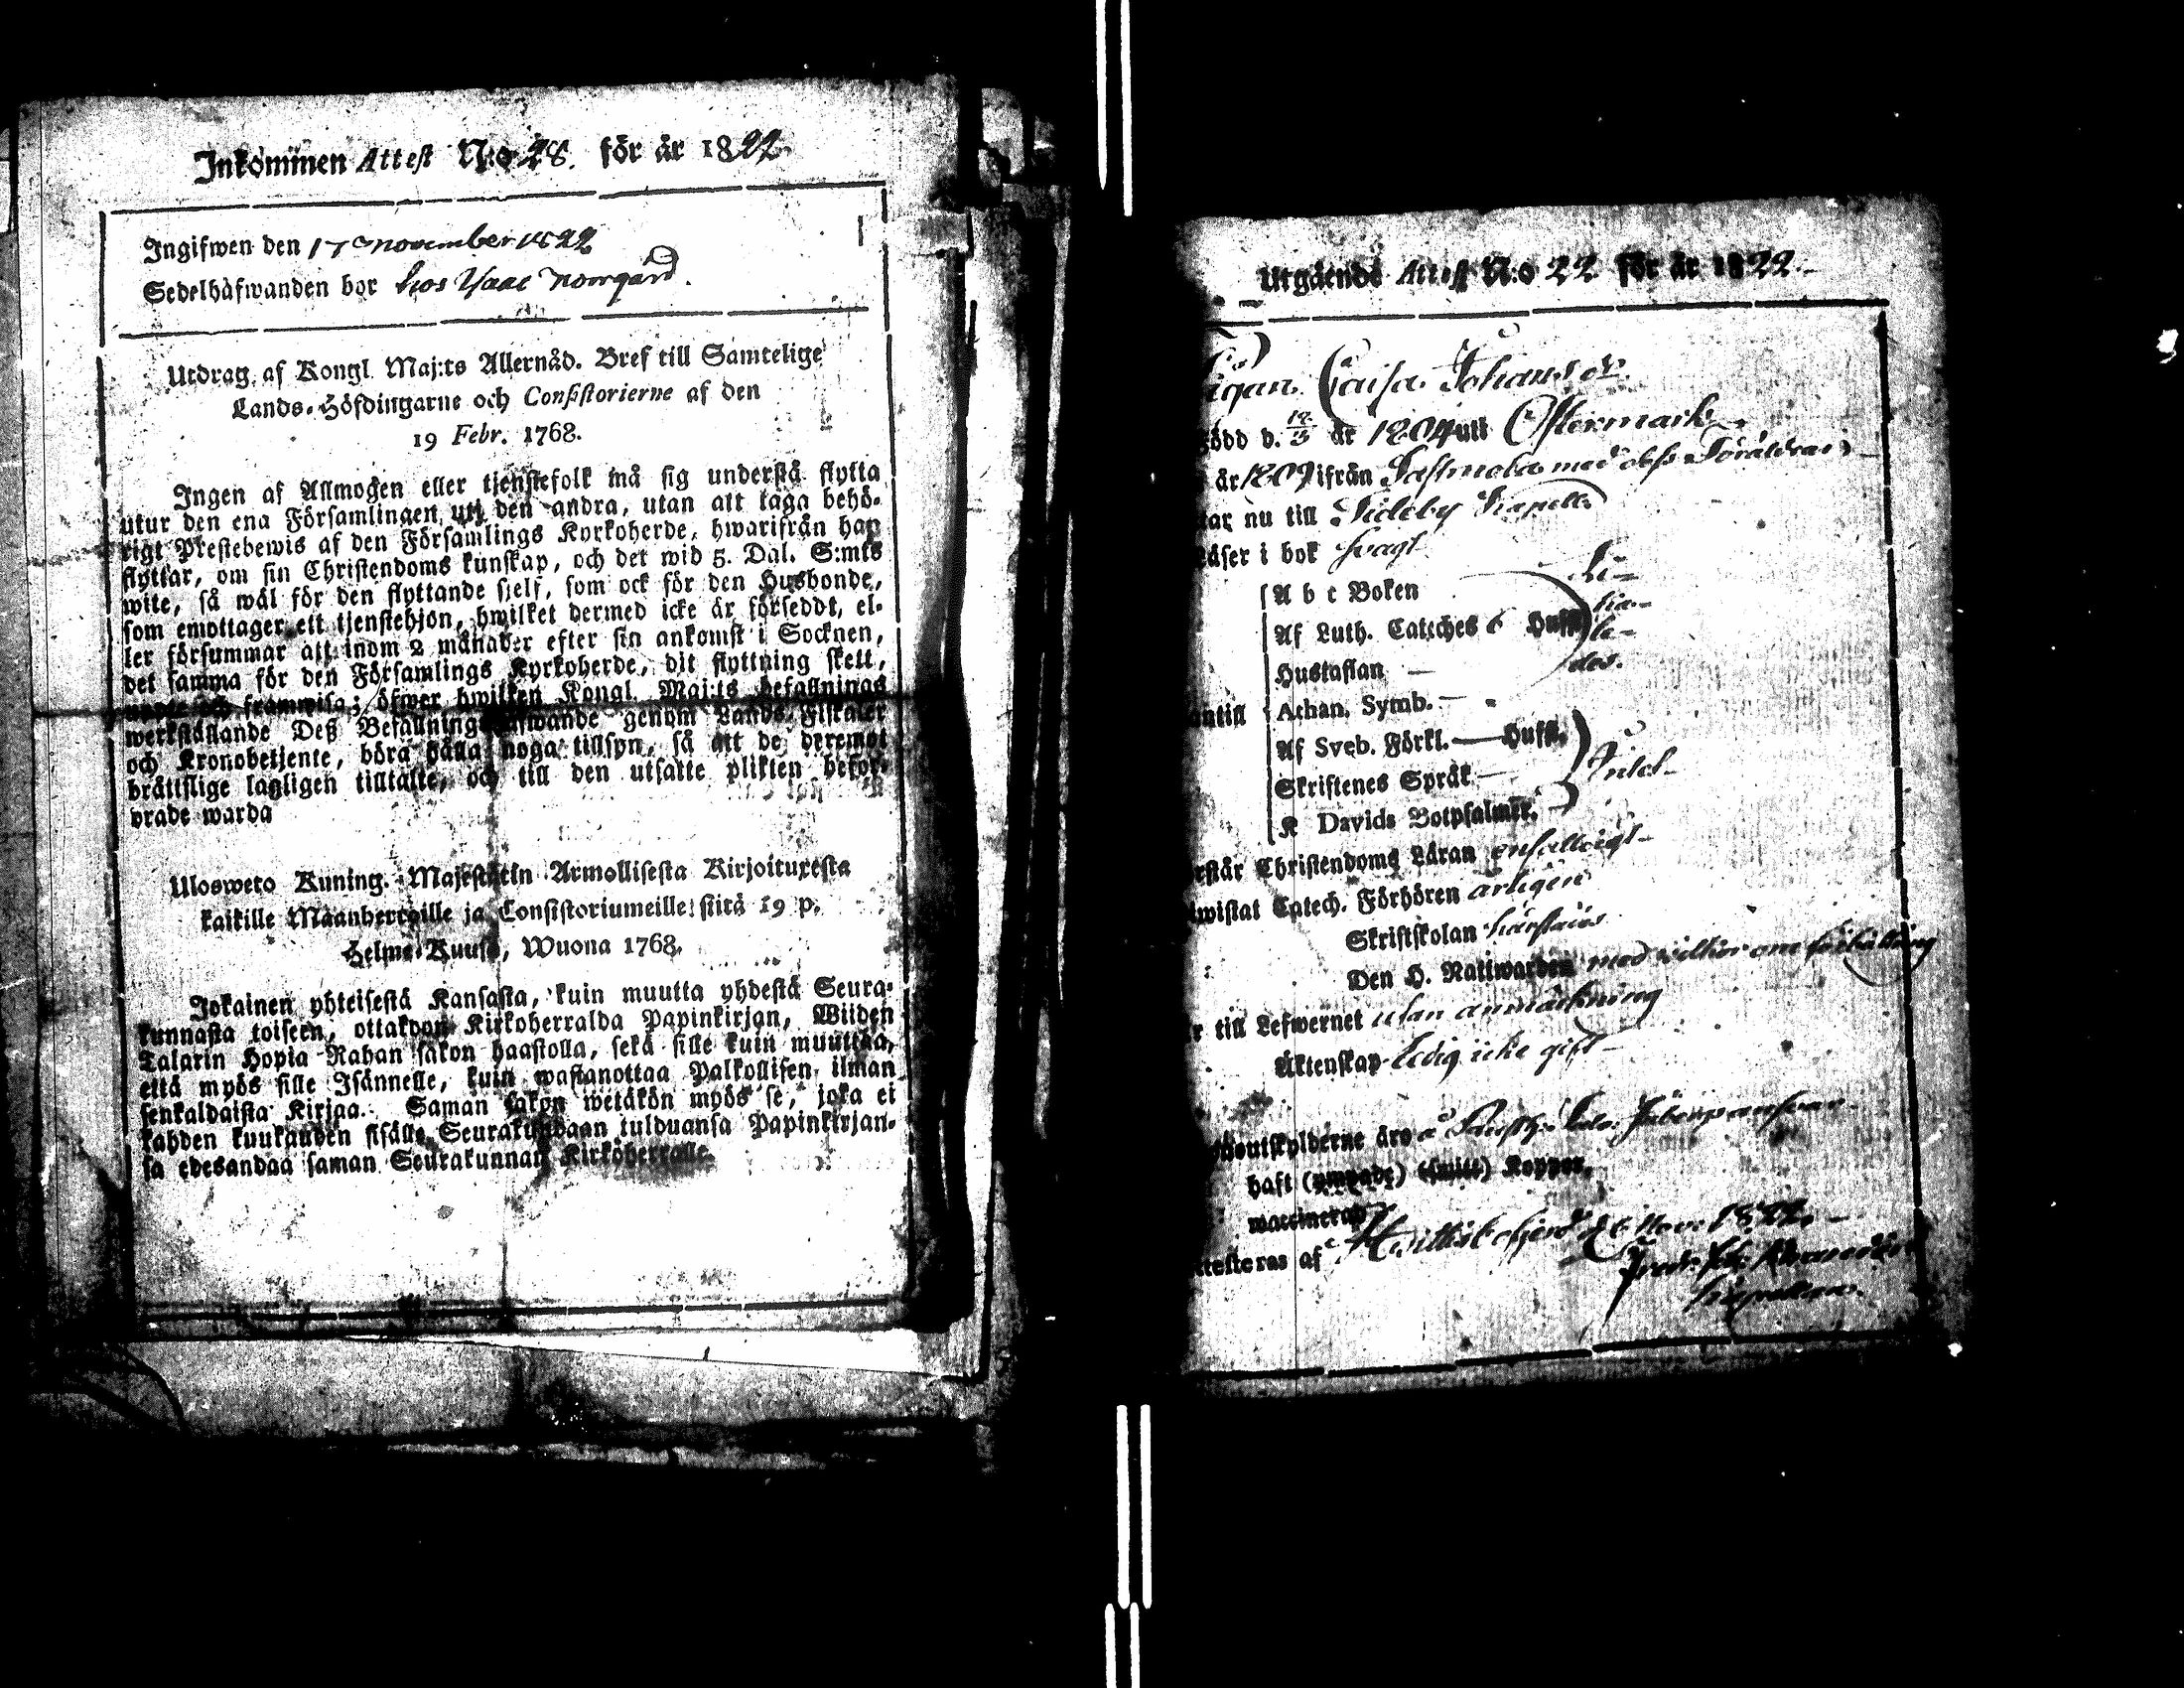 Inkommen Attest N:o 28. för år 1822
Ingifwen den 17 november 1822
Sedelhäfwanden bor hos Isaac norrgård.
Utdrag af Kongl. Maj:ts Allernåd. Bref till Samtelige
Lands-Höfdingarne och Consistorierne af den
19 Febr. 1768.
Ingen af Allmogen eller tjenstefolk må sig understå flytta
utur den ena Församlingen uti den andra, utan att taga behö-
rigt Prestebewis af den Församlings Kyrkoherde, hwarifrån han
flyttar, om sin Christendoms kunskap, och det wid 5. Dal. S:mts
wite, så wäl för den flyttande sjelf, som ock för den Husbonde,
som emottager ett tjenstehjon, hwilket dermed icke är försedt, el-
ler försummar att inom 2 månader efter sin ankomst i Socknen,
det samma för den Församlings Kyrkoherde, dit flyttning skett,
framwisa; öfwer hwilken Kongl. Maj:ts befallnings
werkställande Deß Befallningshafwande genom Lands Fiskaler
och Kronobetjente, böra hålla noga tillsyn, så att de deremot
bråttslige lagligen tilltalte, och till den utsatte plikten befor-
drade warda
Ulosweto Kuning. Majestätin Armollisesta Kirjoituxesta
kaikille Maanherroille ja Consistoriumeille siitä 19 p.
Helme-Kuusa, Wuona 1768.
Jokainen yhteisestä Kansasta, kuin muutta yhdestä Seura-
kunnasta toiseen, ottakoon Kirkoherralda Papinkirjan, Wiiden
Talarin Hopia Rahan sakon haastolla, sekä sille kuin muuttaa,
että myös sille Isännelle, kuin wastanottaa Palkollisen ilman
senkaldaista Kirjaa. Saman sakon wetäkön myös se, joka ei
kahden kuukauden sisälle Seurakundaan tulduansa Papinkirjan-
sa edesandaa saman Seurakunnan Kirköherralle.
Utgående Attest N:o 22 för år 1822.
Pigan Caisa Johansdr
född d. 12/3 år 1804 uti Östermark
år 1809 ifrån Lastmola med dess Föräldrar
tar nu till Sideby Kapell
läser i bok swagt
A b c Boken
Af Luth. Cateches 6 Hufst.
Hustaflan —
antill Athan. Symb. —
Af Sveb. Förkl. — Hufst.
Skriftenes Språk —
K Davids Botpsalmer.
rstår Christendoms Läran enfalldigt
wistat Catech. Förhören årligen
Skriftskolan härstädes
Den H. Nattwarden med wilkor om förbättring
r till Lefwernet utan anmärkning
Äktenskap ledig icke gift
haft (ympade) (smitt) Koppor,
waccinerad
ttesteras af d 6 Nov: 1822
Kapellan.